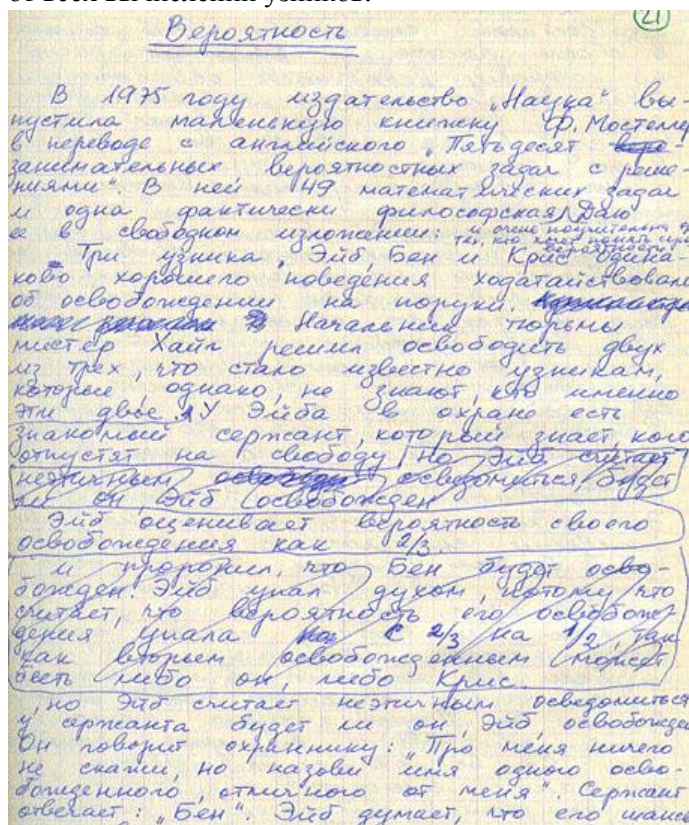 от всех вычислений узников.
21
Вероятность
В 1975 году издательство „Наука“ вы-
пустила маленькую книжку Ф. Мостеллер
в переводе с английского „Пятьдесят
занимательных вероятностных задач с реше-
ниями“ В ней 49 математических задач
и одна фактически философская Даю
и очень поучительна
ее в свободном изложении:
тех, кто хочет понять
Три узника, Эйб, Бен и Крис одина-
ково хорошего поведения ходатайствовали
об освобождении на поруки.
Начальник тюрьмы
мистер Хайл решил освободить двух
из трех, что стало известно узникам,
которые, однако, не знают, кто именно
эти двое. У Эйба в охране есть
знакомый сержант, который знает, кого
отпустят на свободу но Эйб считает
неэтичным осведомиться, будет
ли он, Эйб освобожден
Эйб оценивает вероятность своего
освобождения как 2/3.
и проронил, что Бен будет осво-
божден. Эйб упал духом, потому что
считает, что вероятность его освобож-
дения упала с 2/3 на 1/2, так
как вторым освобожденным может
быть либо он, либо Крис.
, но Эйб считает неэтичным осведомиться
у сержанта будет ли он, Эйб, освобожден
Он говорит охраннику: „Про меня ничего
не скажи, но назови имя одного осво-
божденного, отличного от меня“. Сержант
отвечает: „Бен“. Эйб думает, что его шансы